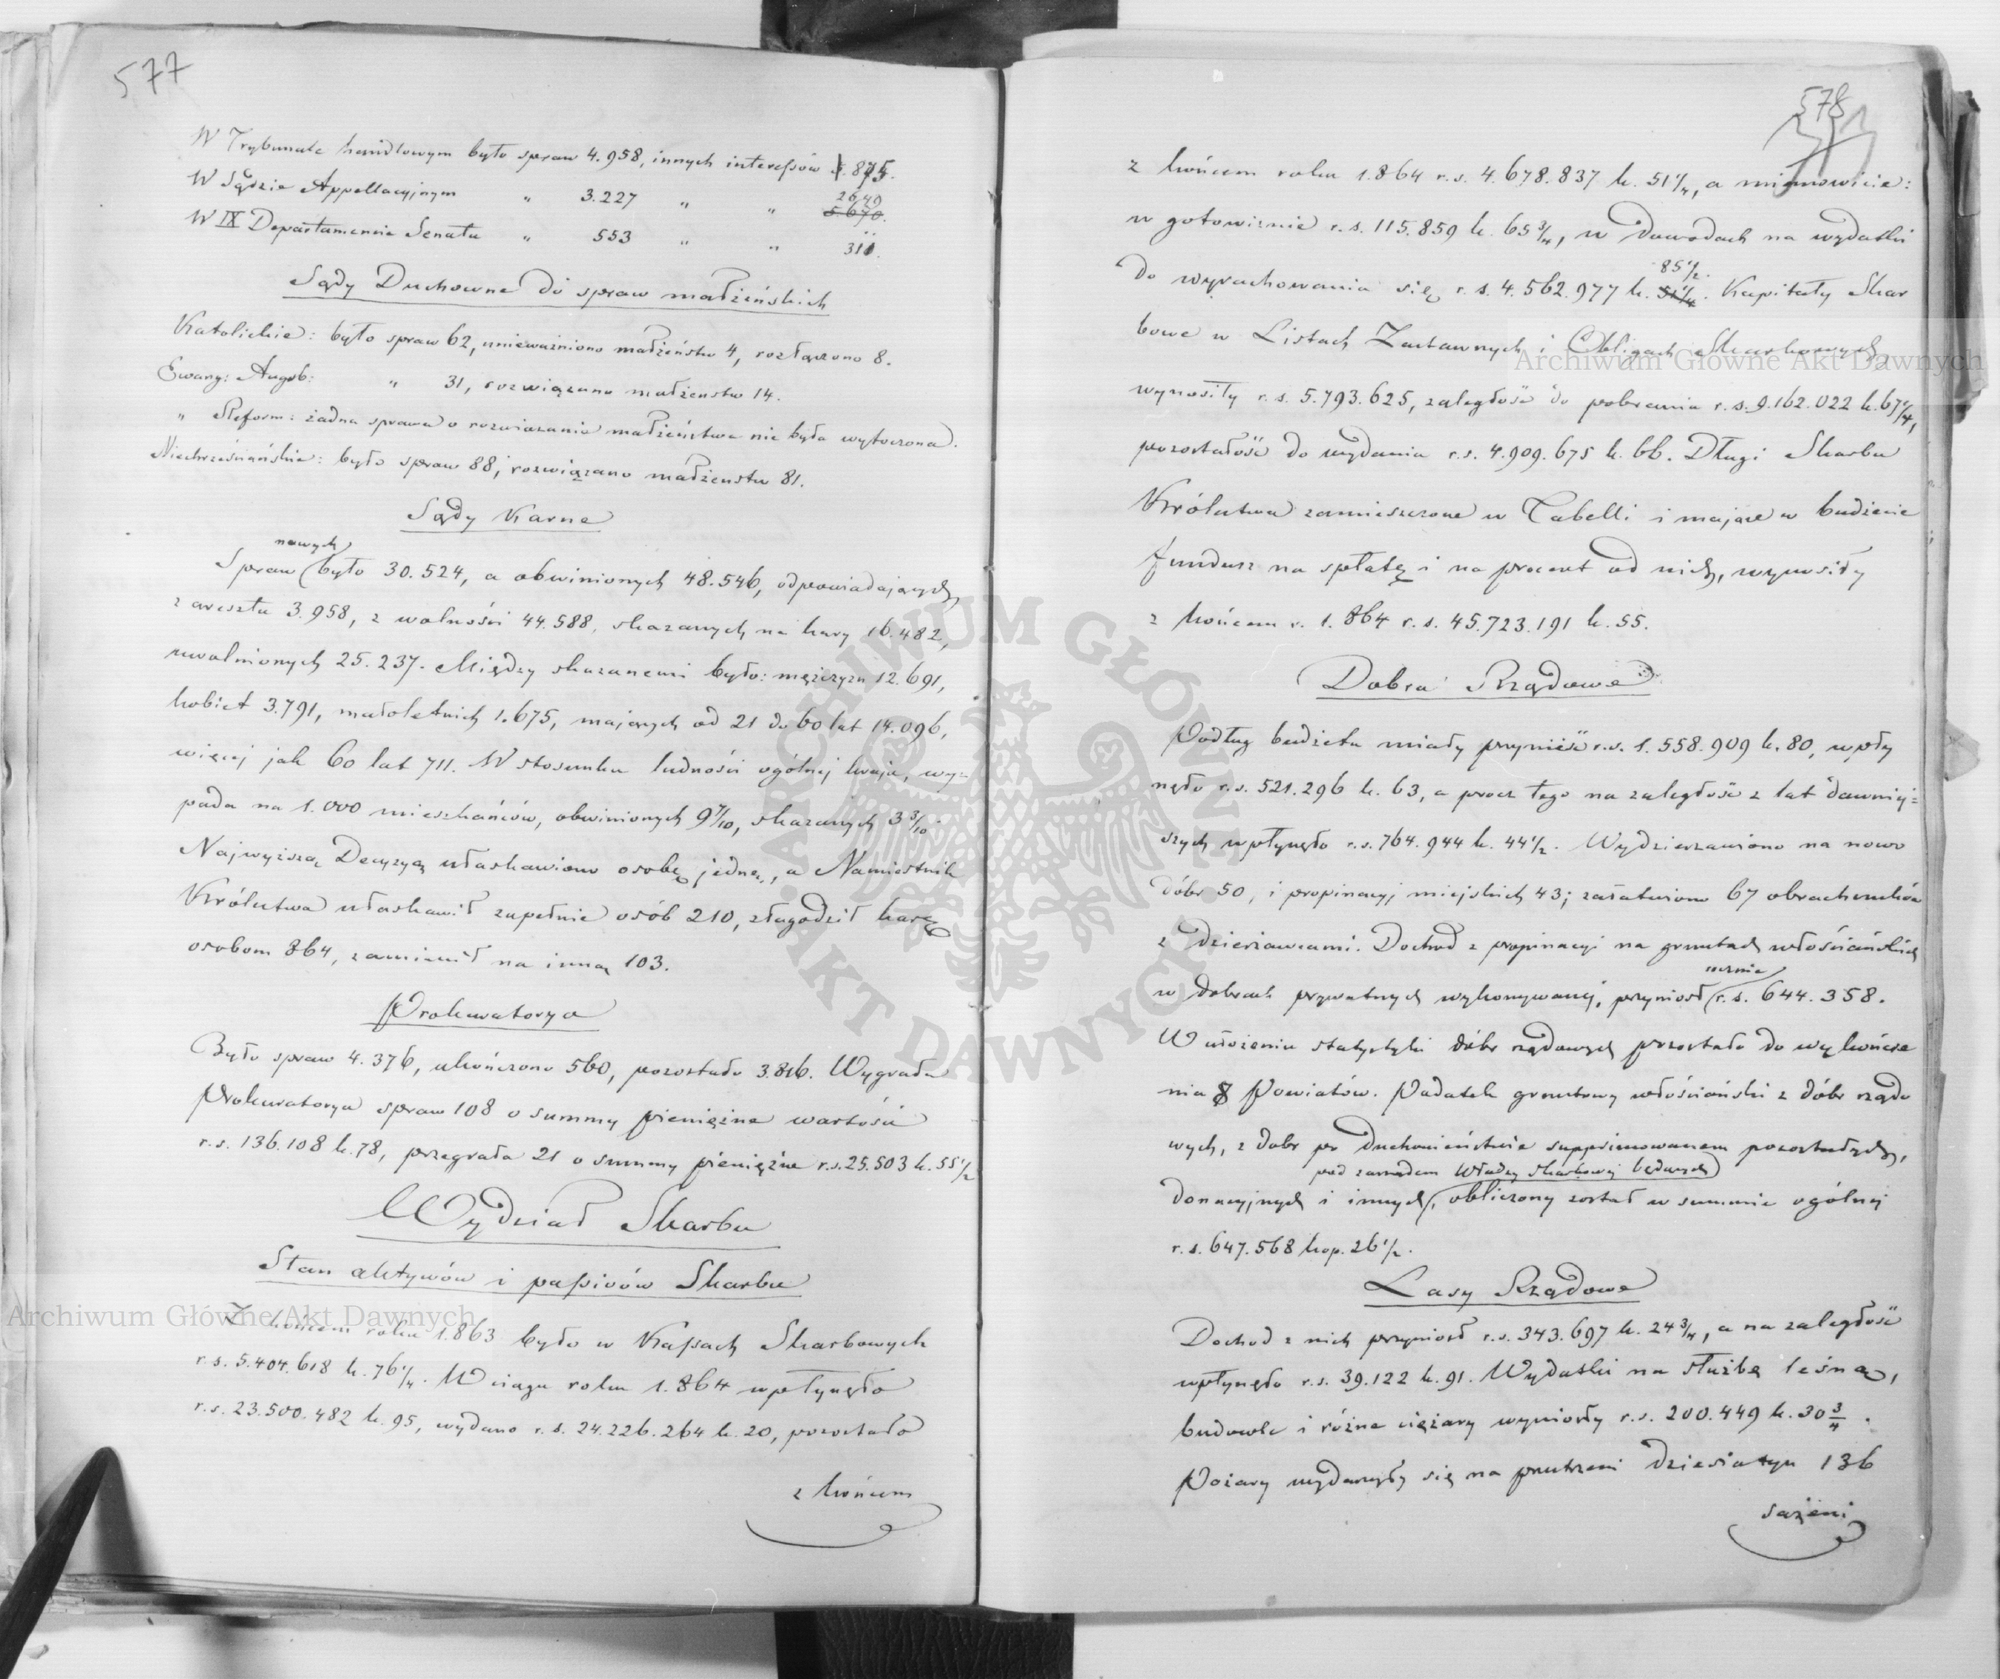 577
W Trybunale handlowym było spraw 4.958, innych interessów 875.
W Sądzie Appellacyjnym " 3.227 " " 2649
5670.
W IX Departamencie Senatu " 553 " " 311.
Sądy Duchowne do spraw małżeńskich
Katolickie: było spraw 62, unieważniono małżeństw 4, rozłączono 8.
Ewang: Augsb: " 31, rozwiązano małżenstw 14.
" Reform: żadna sprawa o rozwiazanie małżeństwa nie była wytoczona.
Niechrześciańskie: było spraw 88, rozwiązano małżenstw 81.
Sądy Karne
nowych
Spraw było 30.524, a obwinionych 48.546, odpowiadających
z aresztu 3.958, z wolności 44.588, skazanych na kary 16.482,
uwolnionych 25.237. Między skazanemi było: mężczyzn 12.691,
kobiet 3.791, małoletnich 1.675, mających od 21 do 60 lat 14.096,
więcej jak 60 lat 711. W stosunku ludności ogólnej kraju, wy-
pada na 1.000 mieszkańców, obwinionych 9 7/10, skazanych 3 3/10.
Najwyższą Decyzyą ułaskawiono osobę jedną, a Namiestnik
Królestwa ułaskawił zupełnie osób 210, złagodził karę
osobom 864, zamienił na inną 103.
Prokuratorya
Było spraw 4.376, ukończono 560, pozostało 3.816. Wygrała
Prokuratorya spraw 108 o summy pieniężne wartości
r.s. 136.108 k. 78, przegrała 21 o summy pieniężne r.s. 25.503 k. 55 1/2
Wydział Skarbu
Stan aktywów i passivów Skarbu
Z końcem roku 1.863 było w Kassach Skarbowych
r.s. 5.404.618 k. 76 1/4. W ciągu roku 1.864 wpłynęło
r.s. 23.500.482 k. 95, wydano r.s. 24.226.264 k. 20, pozostało
z końcem
578
z końcem roku 1.864 r.s. 4.678.837 k. 51 1/4, a mianowicie:
w gotowiznie r.s. 115.859 k. 65 3/4, w Dowodach na wydatki
85 1/2.
do wyrachowania się r.s. 4.562.977 k. 51 1/4. Kapitały Skar
bowe w Listach Zastawnych i Obligach Skarbowych,
wynosiły r.s. 5.793.625, zaległość do pobrania r.s. 9.162.022 k. 67 1/4,
pozostałość do wydania r.s. 4.909.675 k. 66. Długi Skarbu
Królestwa zamieszczone w Tabelli i mające w budżecie
fundusz na spłatę i na procent od nich, wynosiły
z końcem r. 1.864 r.s. 45.723.191 k. 55.
Dobra Rządowe
Podług budżetu miały przynieść r.s. 1.558.909 k. 80, wpły
nęło r.s. 521.296 k. 63, a procz tego na zaległość z lat dawniej=
szych wpłynęło r.s. 764.944 k. 44 1/2. Wydzierzawiono na nowo
dóbr 50, i propinacyj miejskich 43; załatwiono 67 obrachunków
z dzierżawcami. Dochod z propinacyi na gruntach włościańskich
rocznie
w dobrach prywatnych wykonywanej, przyniosł r.s. 644.358.
W ułożeniu statystyki dóbr rządowych pozostało do wykończe
nia 8 Powiatów. Podatek gruntowy włościański z dóbr rządo
wych, z dobr po Duchowieństwie supprimowanem pozostałych,
pod zarządem Władzy Skarbowej będących
donacyjnych i innych, obliczony został w summie ogólnej
r.s. 647.568 kop. 26 1/2.
Lasy Rządowe
Dochod z nich przyniosł r.s. 343.697 k. 24 3/4, a na zaległość
wpłynęło r.s. 39.122 k. 91. Wydatki na służbę leśną,
budowle i różne ciężary wyniosły r.s. 200.449 k. 30 3/4.
Pożary wydarzyły się na przestrzeni dziesiatyn 136
sążeni
Archiwum Główne Akt Dawnych
Archiwum Główne Akt Dawnych
ARCHIWUM GŁÓWNE AKT DAWNYCH